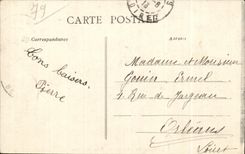 79
CARTE POSTALE
Correspondance
Adresse
Bons baisers.
Pierre
Madame et Monsieur
Gouin Ernest
4 Rue de Jargeau
Orléans
Loiret